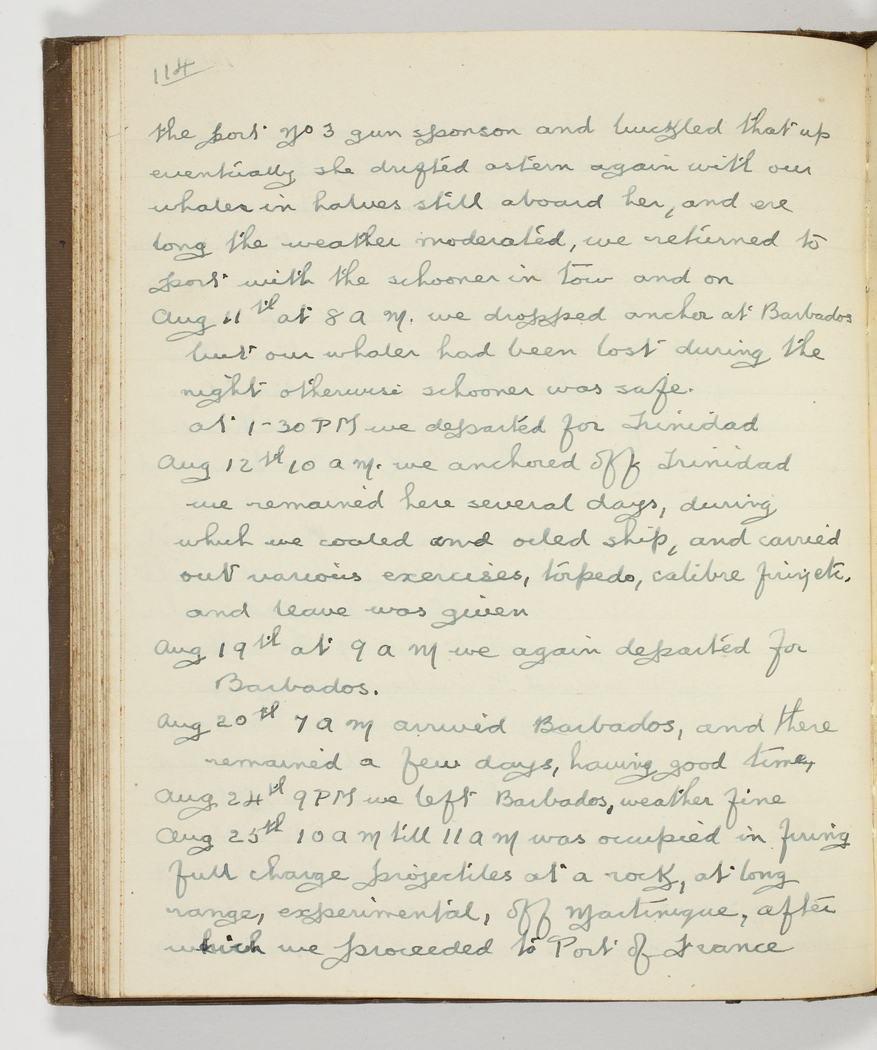 114
the port No 3 gun sponson and buckled that up
eventually she drifted astern again with our
whaler in halves still aboard her, and ere
long the weather moderated, we returned to
port with the schooner in tow and on
Aug 11th at 8 A M. we dropped anchor at Barbados
but our whaler had been lost during the
night otherwise schooner was safe.
at 1-30 PM we departed for Trinidad
Aug 12th 10 a m. we anchored off Trinidad
we remained here several days, during
which we coaled and oiled ship, and carried
out various exercises, torpedo, calibre firing etc.
and leave was given
Aug 19th at 9 a m we again departed for
Barbados.
Aug 20th 7 a m arrived Barbados, and there
remained a few days, having good time,
Aug 24th 9 PM we left Barbados, weather fine
Aug 25th 10 a m till 11 a m was occupied in firing
full charge projectiles at a rock, at long
range, experimental, off Martinique, after
which we proceeded to Port of France